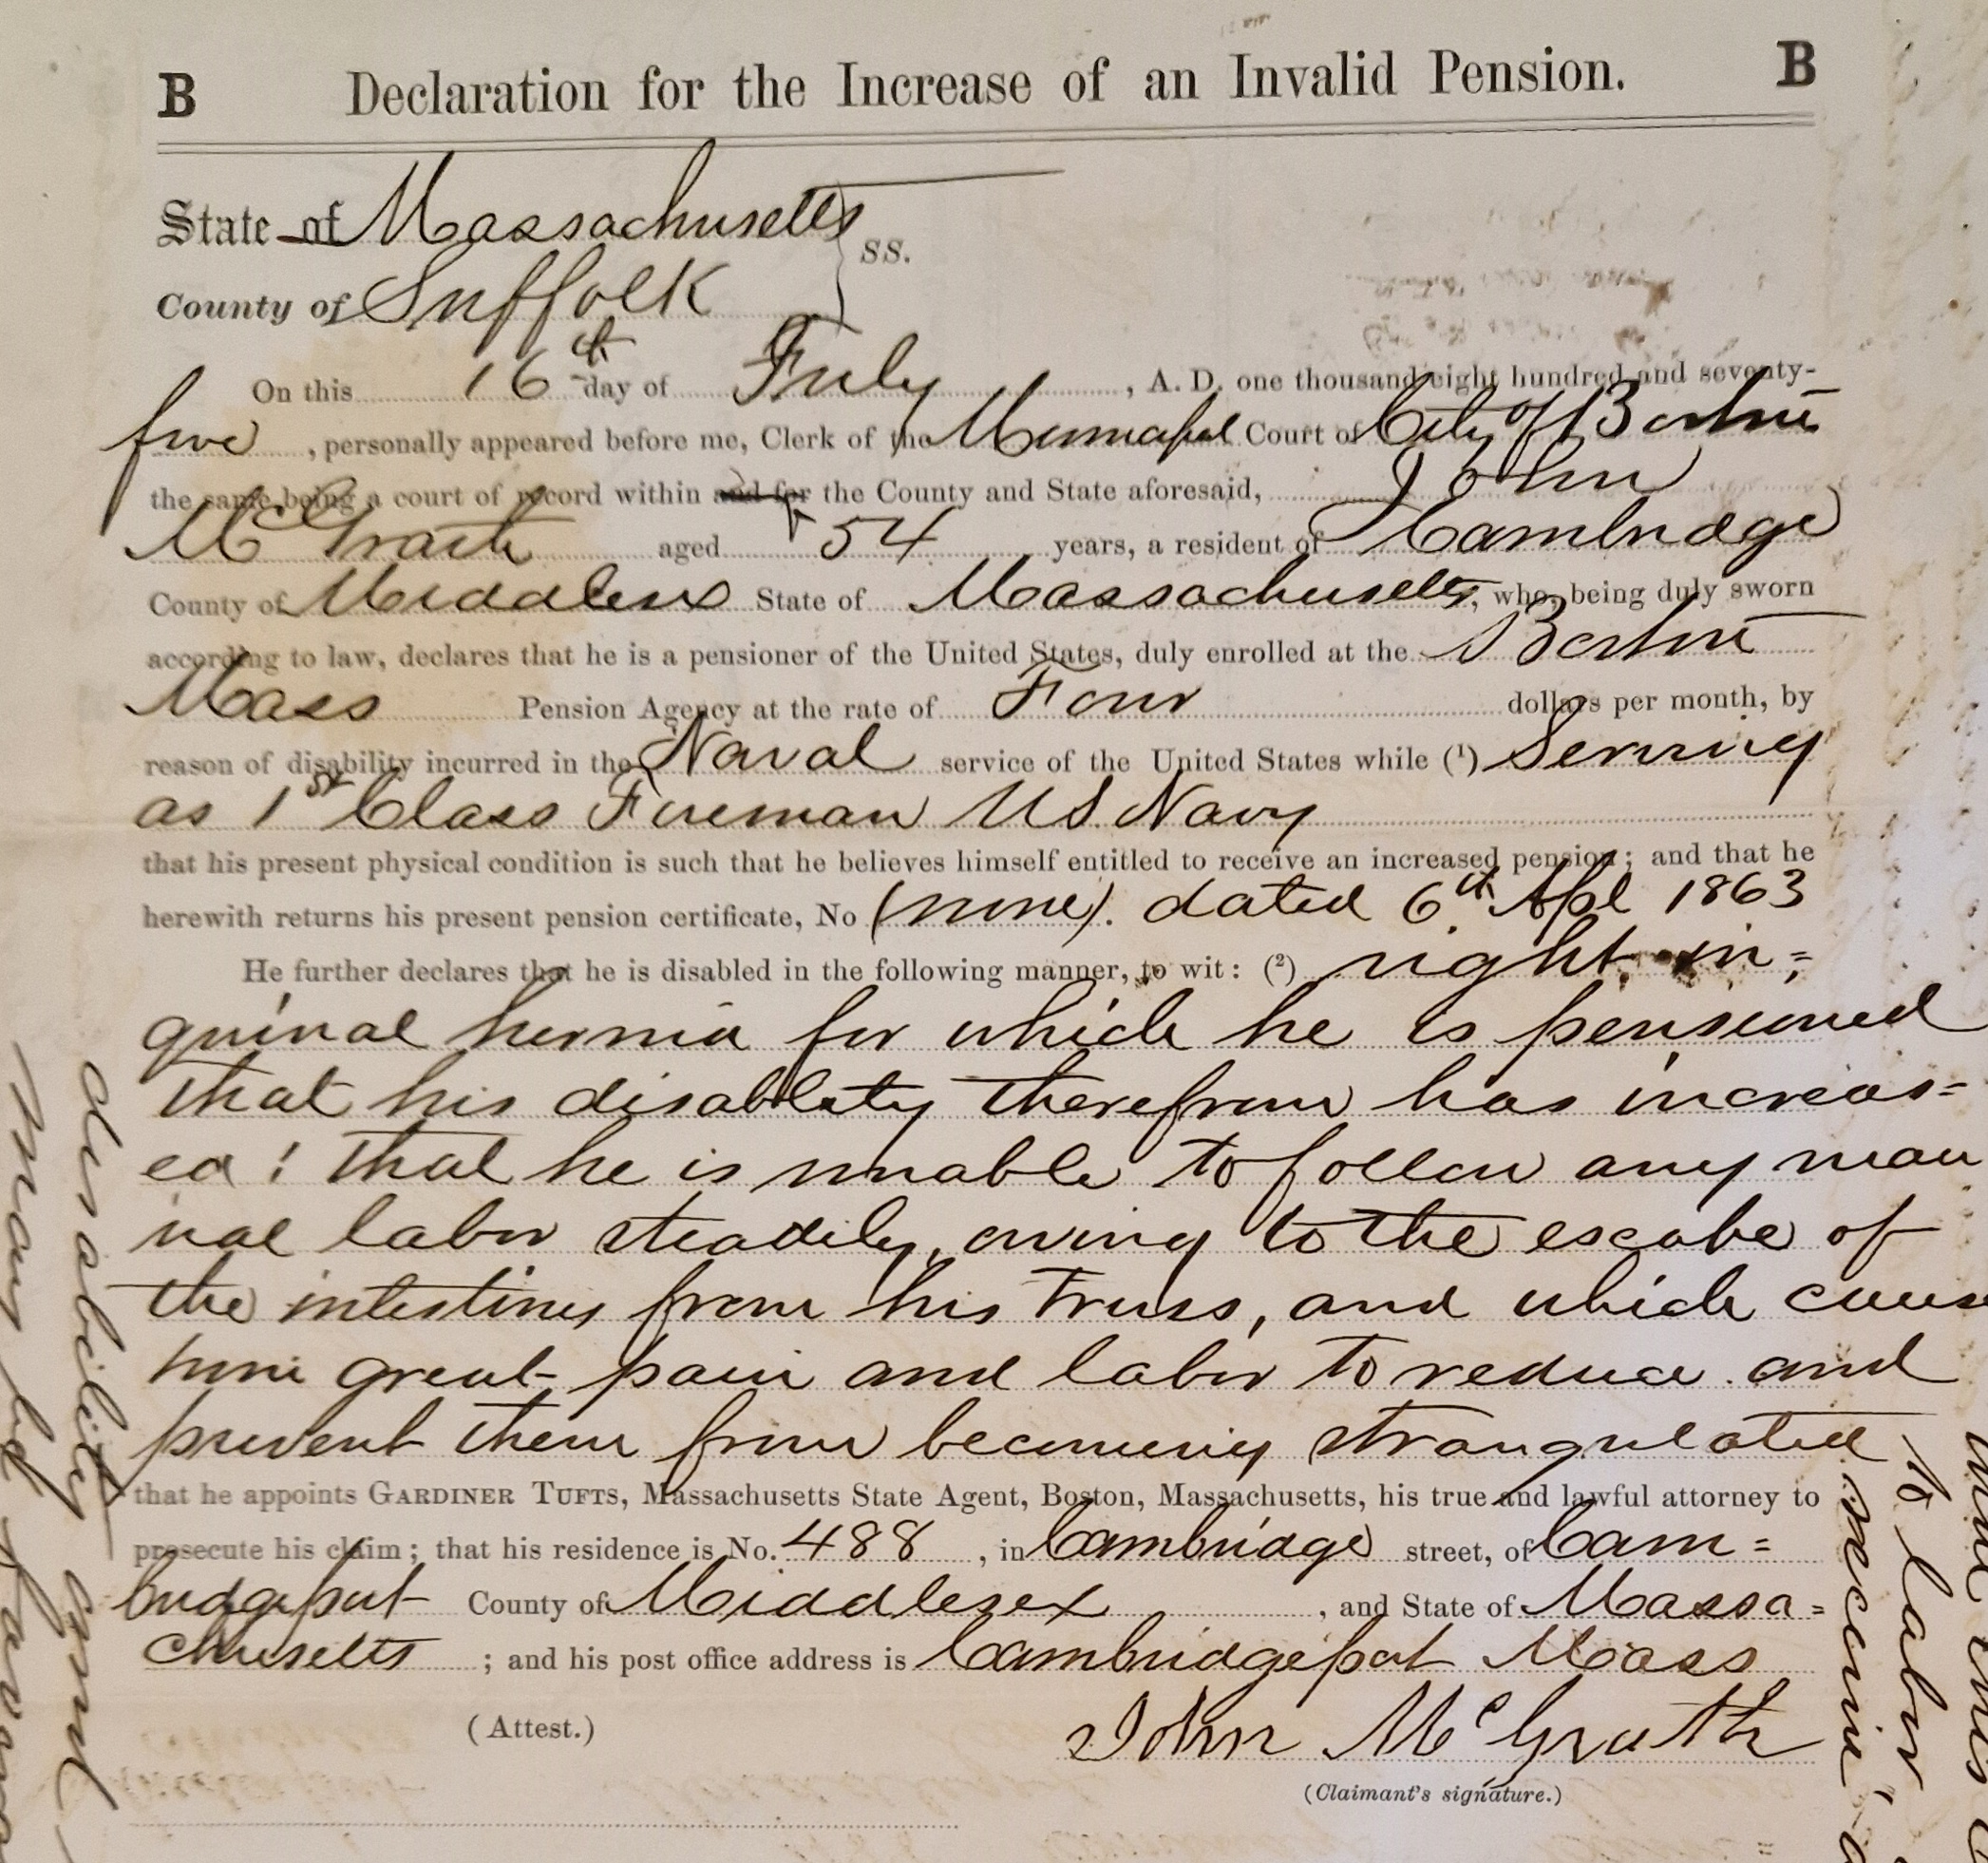 B Declaration for the Increase of an Invalid Pension. B
State of Massachusetts
ss.
County of Suffolk
On this 16th day of July, A. D. one thousand eight hundred and seventy-
five, personally appeared before me, Clerk of the Municipal Court of City of Boston
the same being a court of record within and for the County and State aforesaid, John
McGrath aged 54 years, a resident of Cambridge
County of Middlesex State of Massachusetts, who, being duly sworn
according to law, declares that he is a pensioner of the United States, duly enrolled at the Boston
Mass Pension Agency at the rate of Four dollars per month, by
reason of disability incurred in the Naval service of the United States while (1) Serving
as 1st Class Fireman US Navy
that his present physical condition is such that he believes himself entitled to receive an increased pension; and that he
herewith returns his present pension certificate, No (none). dated 6th Apl 1863
He further declares that he is disabled in the following manner, to wit: (2) right in=
guinal hernia for which he is pensioned
that his disability therefrom has increas=
ed; that he is unable to follow any man
ual labor steadily, owing to the escape of
the intestines from his truss, and which cause
him great pain and labor to reduce and
prevent them from becoming strangulated
that he appoints GARDINER TUFTS, Massachusetts State Agent, Boston, Massachusetts, his true and lawful attorney to
prosecute his claim; that his residence is No. 488, in Cambridge street, of Cam=
bridgeport County of Middlesex, and State of Massa=
chusetts; and his post office address is Cambridgeport Mass
(Attest.)
John McGrath
(Claimant's signature.)
disability and
may be
to labor